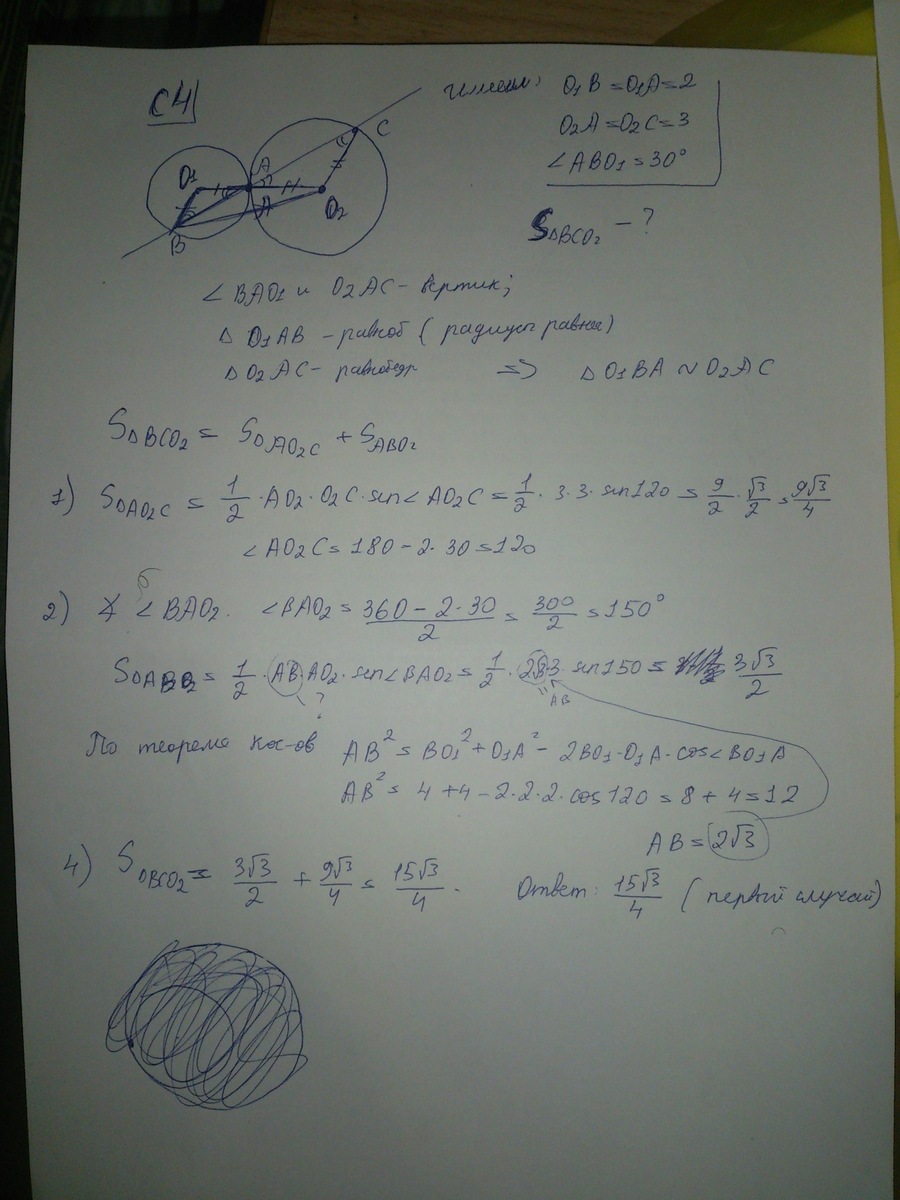 C4
Имеем: O₁B = O₁A = 2
O₂A = O₂C = 3
∠ABO₁ = 30°
S△BCO₂ - ?
O₁ A C O₂ B
∠BAO₁ и O₂AC - вертик;
△ O₁AB - равноб (радиусы равны)
△ O₂AC - равнобедр => △ O₁BA ~ O₂AC
S△BCO₂ = S△AO₂C + SABO₂
1) S△AO₂C = 1/2 · AO₂ · O₂C · sin∠AO₂C = 1/2 · 3·3 · sin120 = 9/2 · √3/2 = 9√3/4
∠AO₂C = 180 - 2·30 = 120
2) ∠BAO₂. ∠BAO₂ = (360 - 2·30)/2 = 300/2 = 150°
S△ABO₂ = 1/2 · AB · AO₂ · sin∠BAO₂ = 1/2 · 2√3·3 · sin150 = 3√3/2
? AB
По теореме кос-ов AB² = BO₁² + O₁A² - 2BO₁·O₁A·cos∠BO₁A
AB² = 4 + 4 - 2·2·2·cos120 = 8 + 4 = 12
AB = 2√3
4) S△BCO₂ = 3√3/2 + 9√3/4 = 15√3/4. Ответ: 15√3/4 (первый случай)